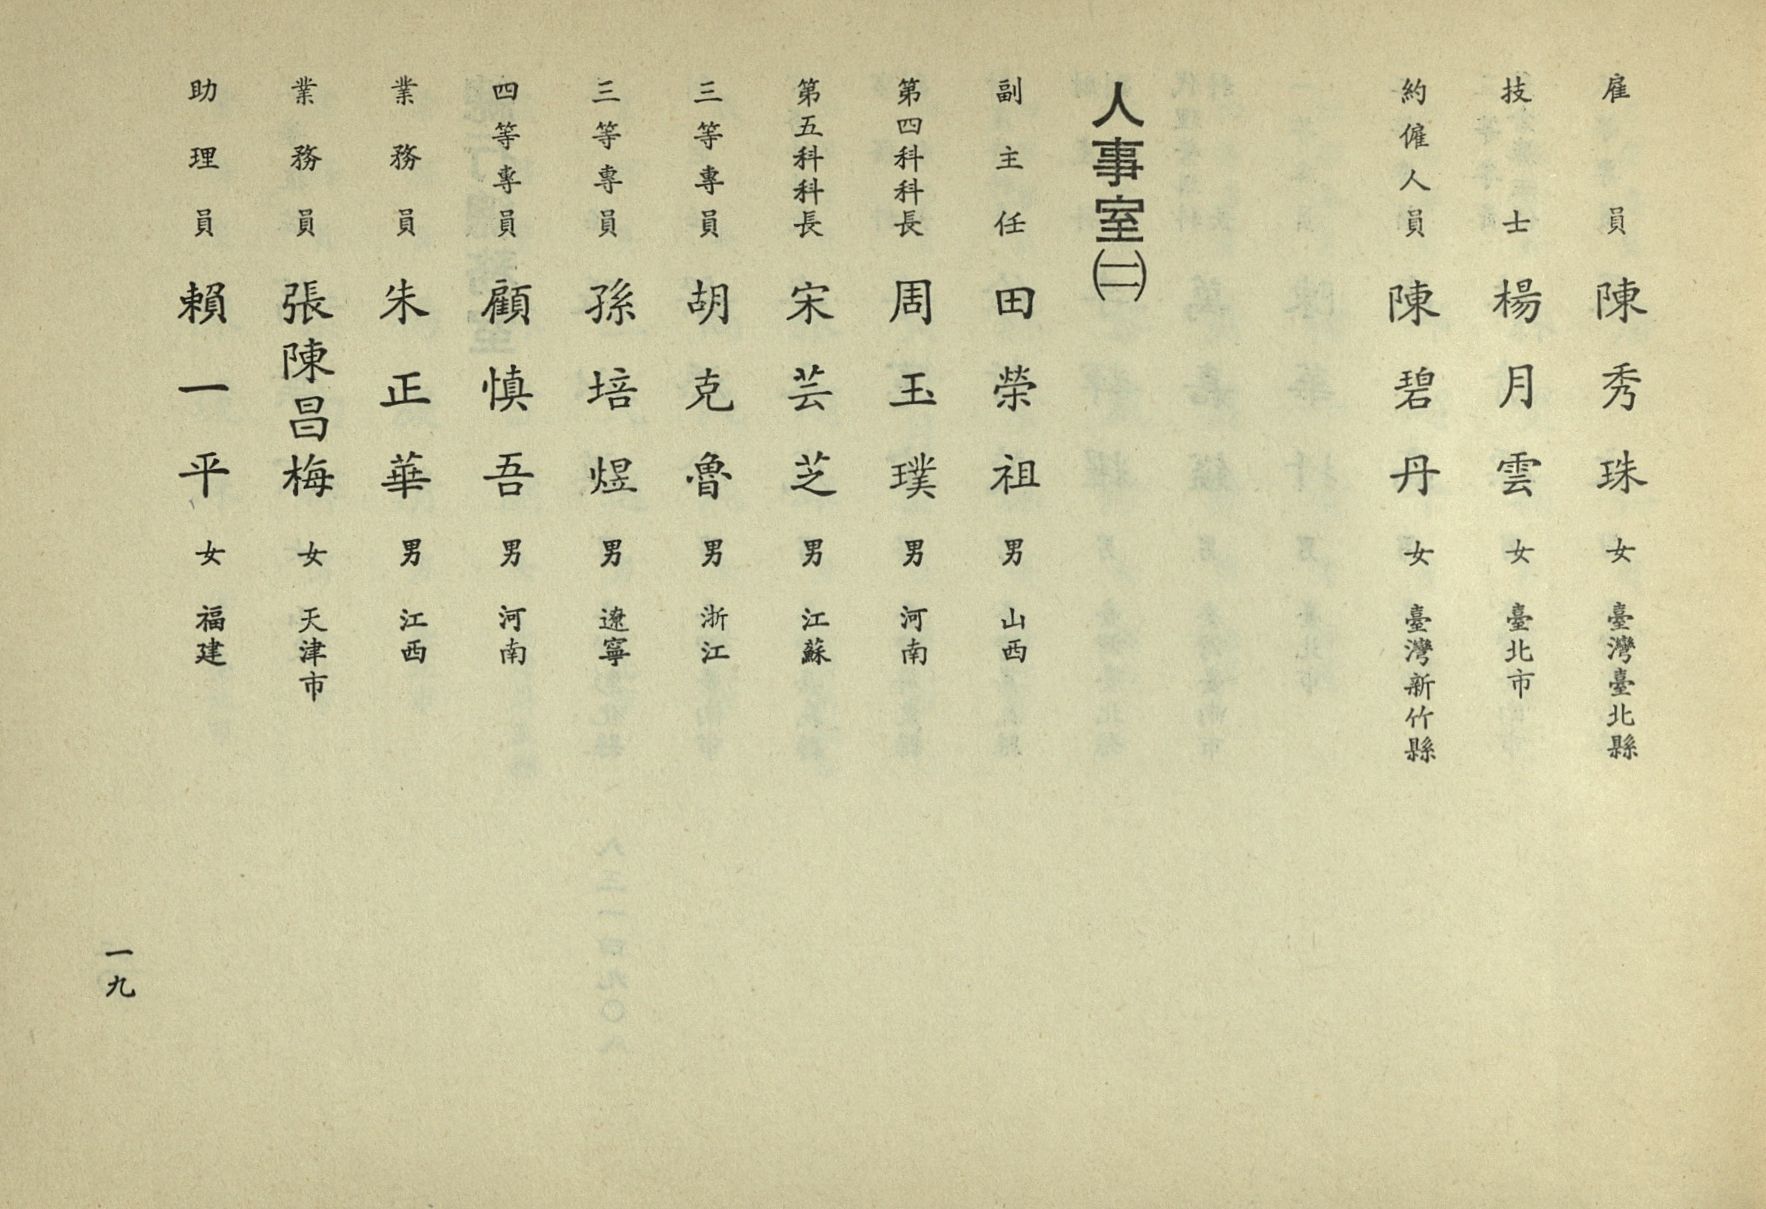 雇員 陳秀珠 女 臺灣臺北縣
技士 楊月雲 女 臺北市
約僱人員 陳碧丹 女 臺灣新竹縣
人事室㈡
副主任 田榮祖 男 山西
第四科科長 周玉璞 男 河南
第五科科長 宋芸芝 男 江蘇
三等專員 胡克魯 男 浙江
三等專員 孫培煜 男 遼寧
四等專員 顧慎吾 男 河南
業務員 朱正華 男 江西
業務員 張陳昌梅 女 天津市
助理員 賴一平 女 福建
一九